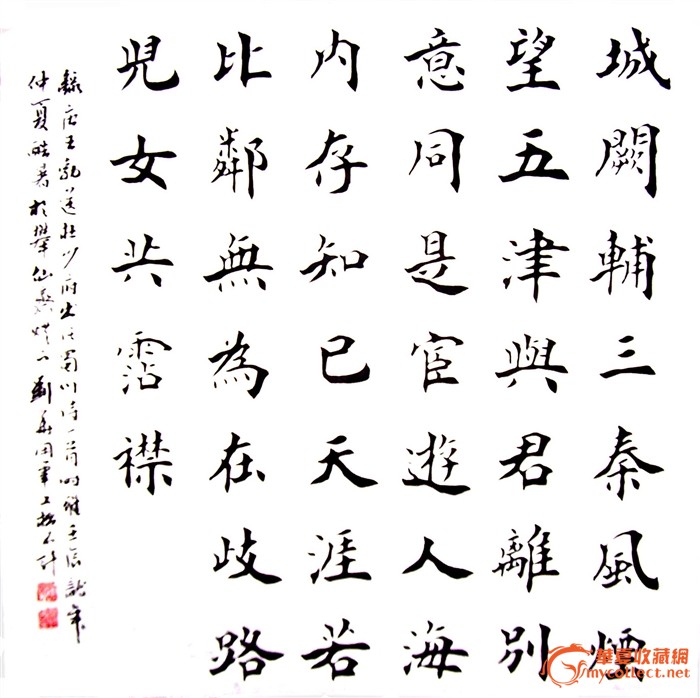 城闕輔三秦風煙
望五津與君離別
意同是宦遊人海
内存知己天涯若
比鄰無為在歧路
兒女共霑襟
錄唐王勃送杜少府之任蜀州詩一首時維壬辰龍年
仲夏酷暑於
華夏收藏網
mycollect.net